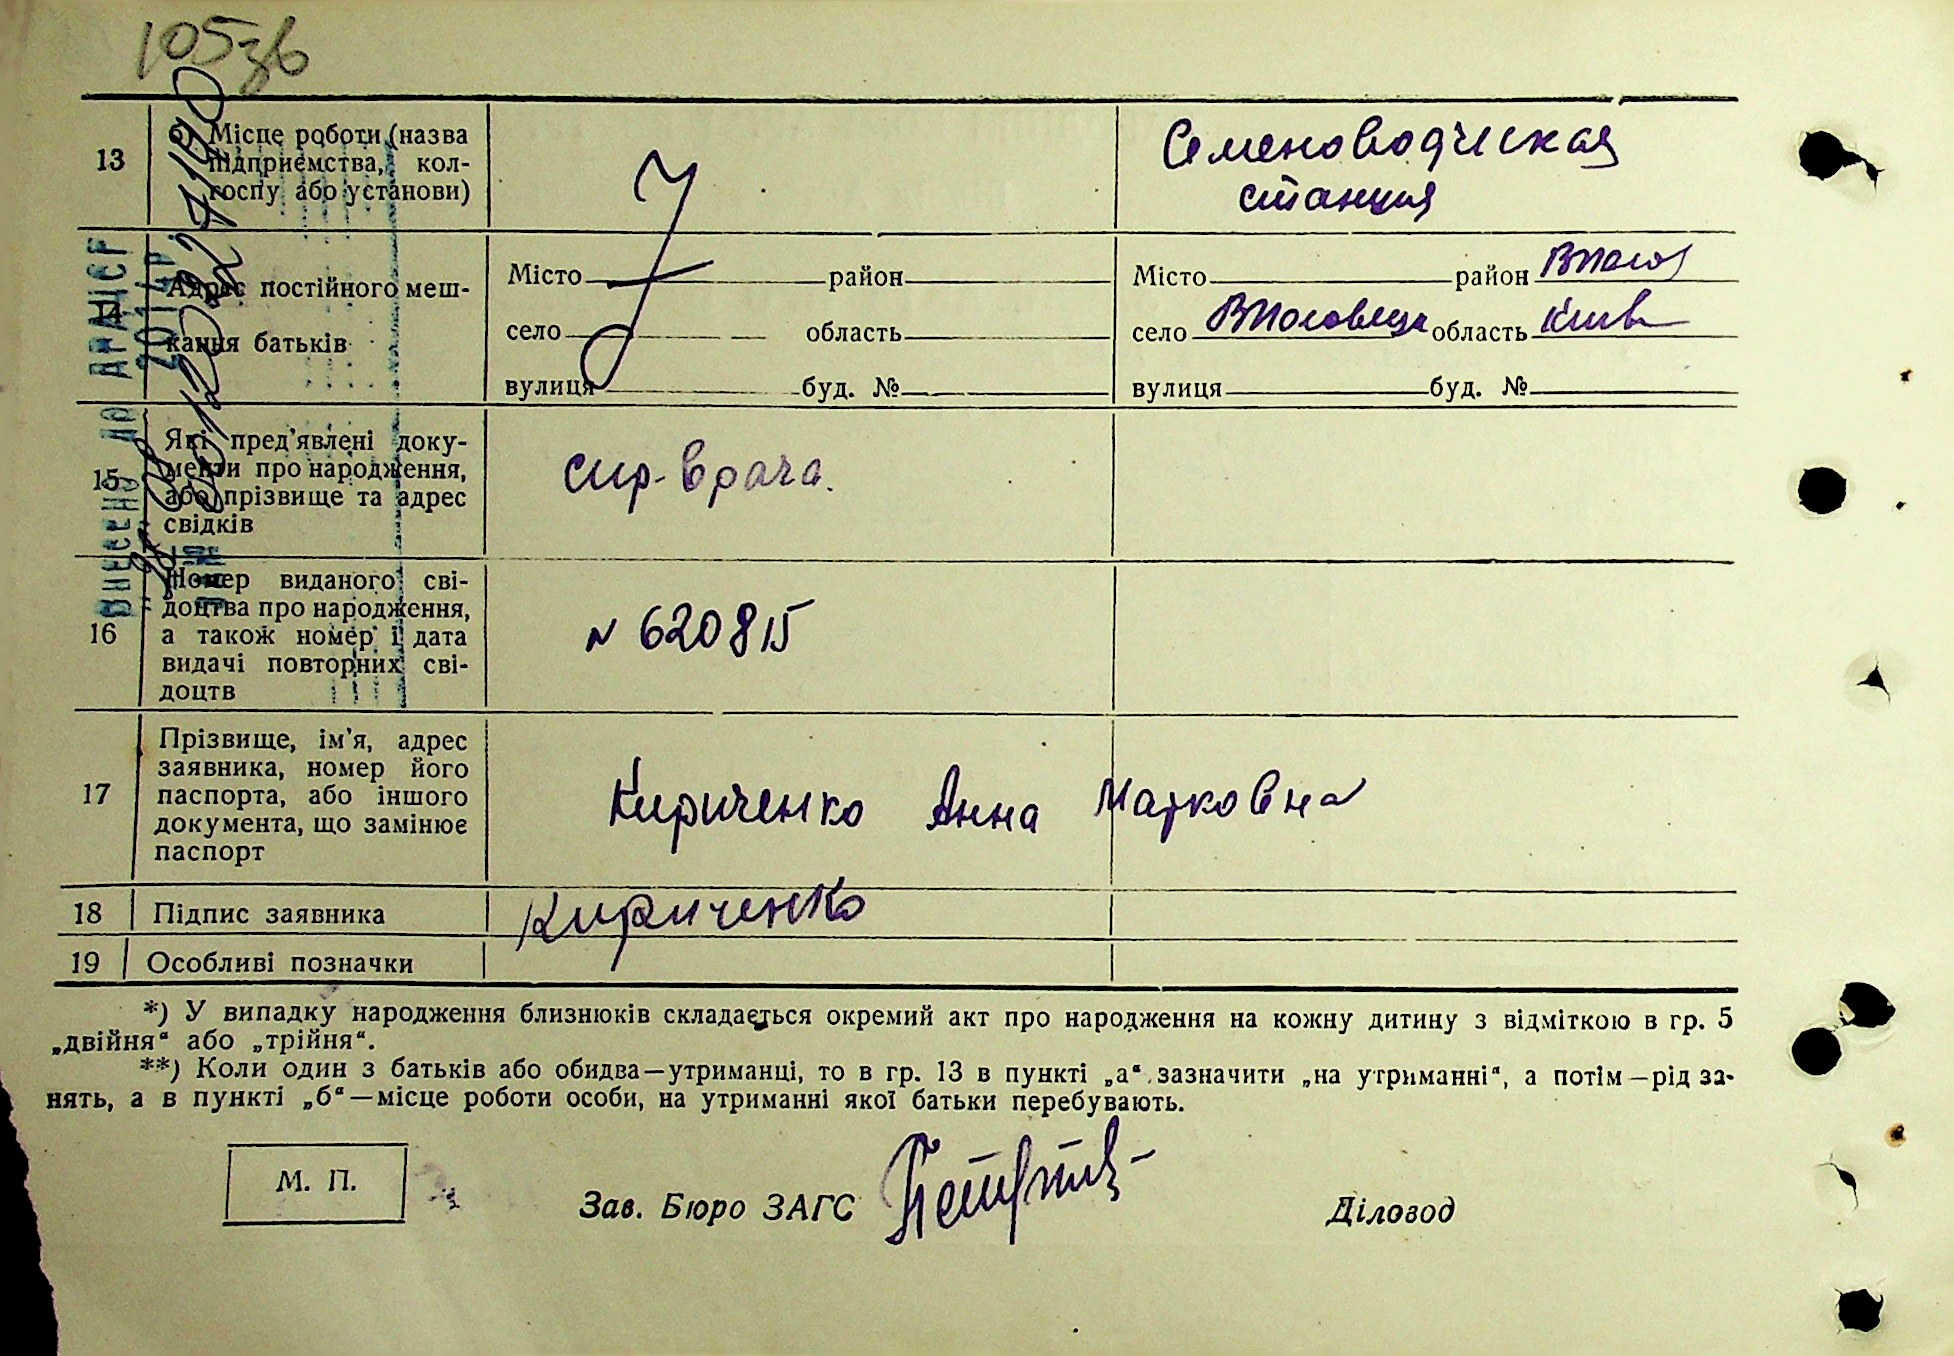 105зв
13
б) Місце роботи (назва
підприємства, кол-
госпу або установи)
Семеноводческая
станция
14
Адрес постійного меш-
кання батьків
Місто район
село область
вулиця буд. №
Місто район Вчасов
село область Київ
вулиця буд. №
15
Які пред'явлені доку-
менти про народження,
або прізвище та адрес
свідків
спр-врача.
16
Номер виданого сві-
доцтва про народження,
а також номер і дата
видачі повторних сві-
доцтв
№ 620815
17
Прізвище, ім'я, адрес
заявника, номер його
паспорта, або іншого
документа, що замінює
паспорт
Кириченко Анна Марковна
18 Підпис заявника Кириченко
19 Особливі позначки
*) У випадку народження близнюків складається окремий акт про народження на кожну дитину з відміткою в гр. 5
„двійня“ або „трійня“.
**) Коли один з батьків або обидва—утриманці, то в гр. 13 в пункті „а“ зазначити „на утриманні“, а потім—рід за-
нять, а в пункті „б“—місце роботи особи, на утриманні якої батьки перебувають.
М. П.
Зав. Бюро ЗАГС
Діловод
Внесено до ДРАЦСГ